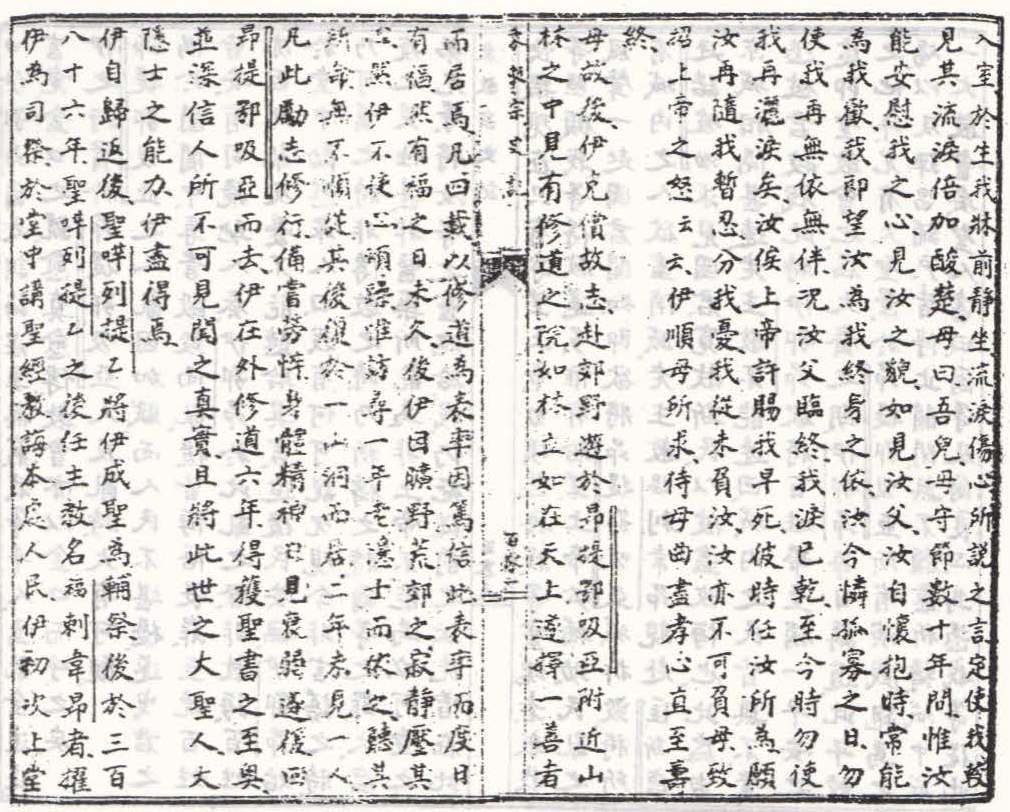 入室於生我牀前靜坐流淚傷心所說之言定使我較
見其流淚倍加酸楚母曰吾兒母守節數十年間惟汝
能安慰我之心見汝之貌如見汝父汝自懷抱時常能
為我歡我即望汝為我終身之依汝今憐孤寡之日勿
使我再無依無伴況汝父臨終我淚已乾至今時勿使
我再灑淚矣汝俟上帝許賜我早死彼時任汝所為願
汝再隨我暫忍分我憂我從未負汝汝亦不可負母致
招上帝之怒云云伊順母所求待母曲盡孝心直至壽
終
母故後伊克償故志赴郊野遊於昂提鄂吸亞附近山
林之中見有修道之院如林立如在天上遂擇一善者
教宗史記
百零二
而居焉凡四載以修道為表率因篤信此表率而度日
有福然有福之日未久後伊因曠野荒郊之寂靜壓其
心然伊不使心煩躁惟訪尋一年老隱士而伏之聽其
所命無不順從其後獨於一山洞而居二年未見一人
凡此勵志修行備嘗勞悴身體精神見衰弱遂復回
昂提鄂吸亞而去伊在外修道六年得獲聖書之至奧
並深信人所不可見聞之真實且將此世之大聖人大
隱士之能力伊盡得焉
伊自歸返後聖咩列提乙將伊成聖為輔祭後於三百
八十六年聖咩列提乙之後任主教名福剌韋昂者擢
伊為司祭於堂中講聖經教誨本處人民伊初次上堂